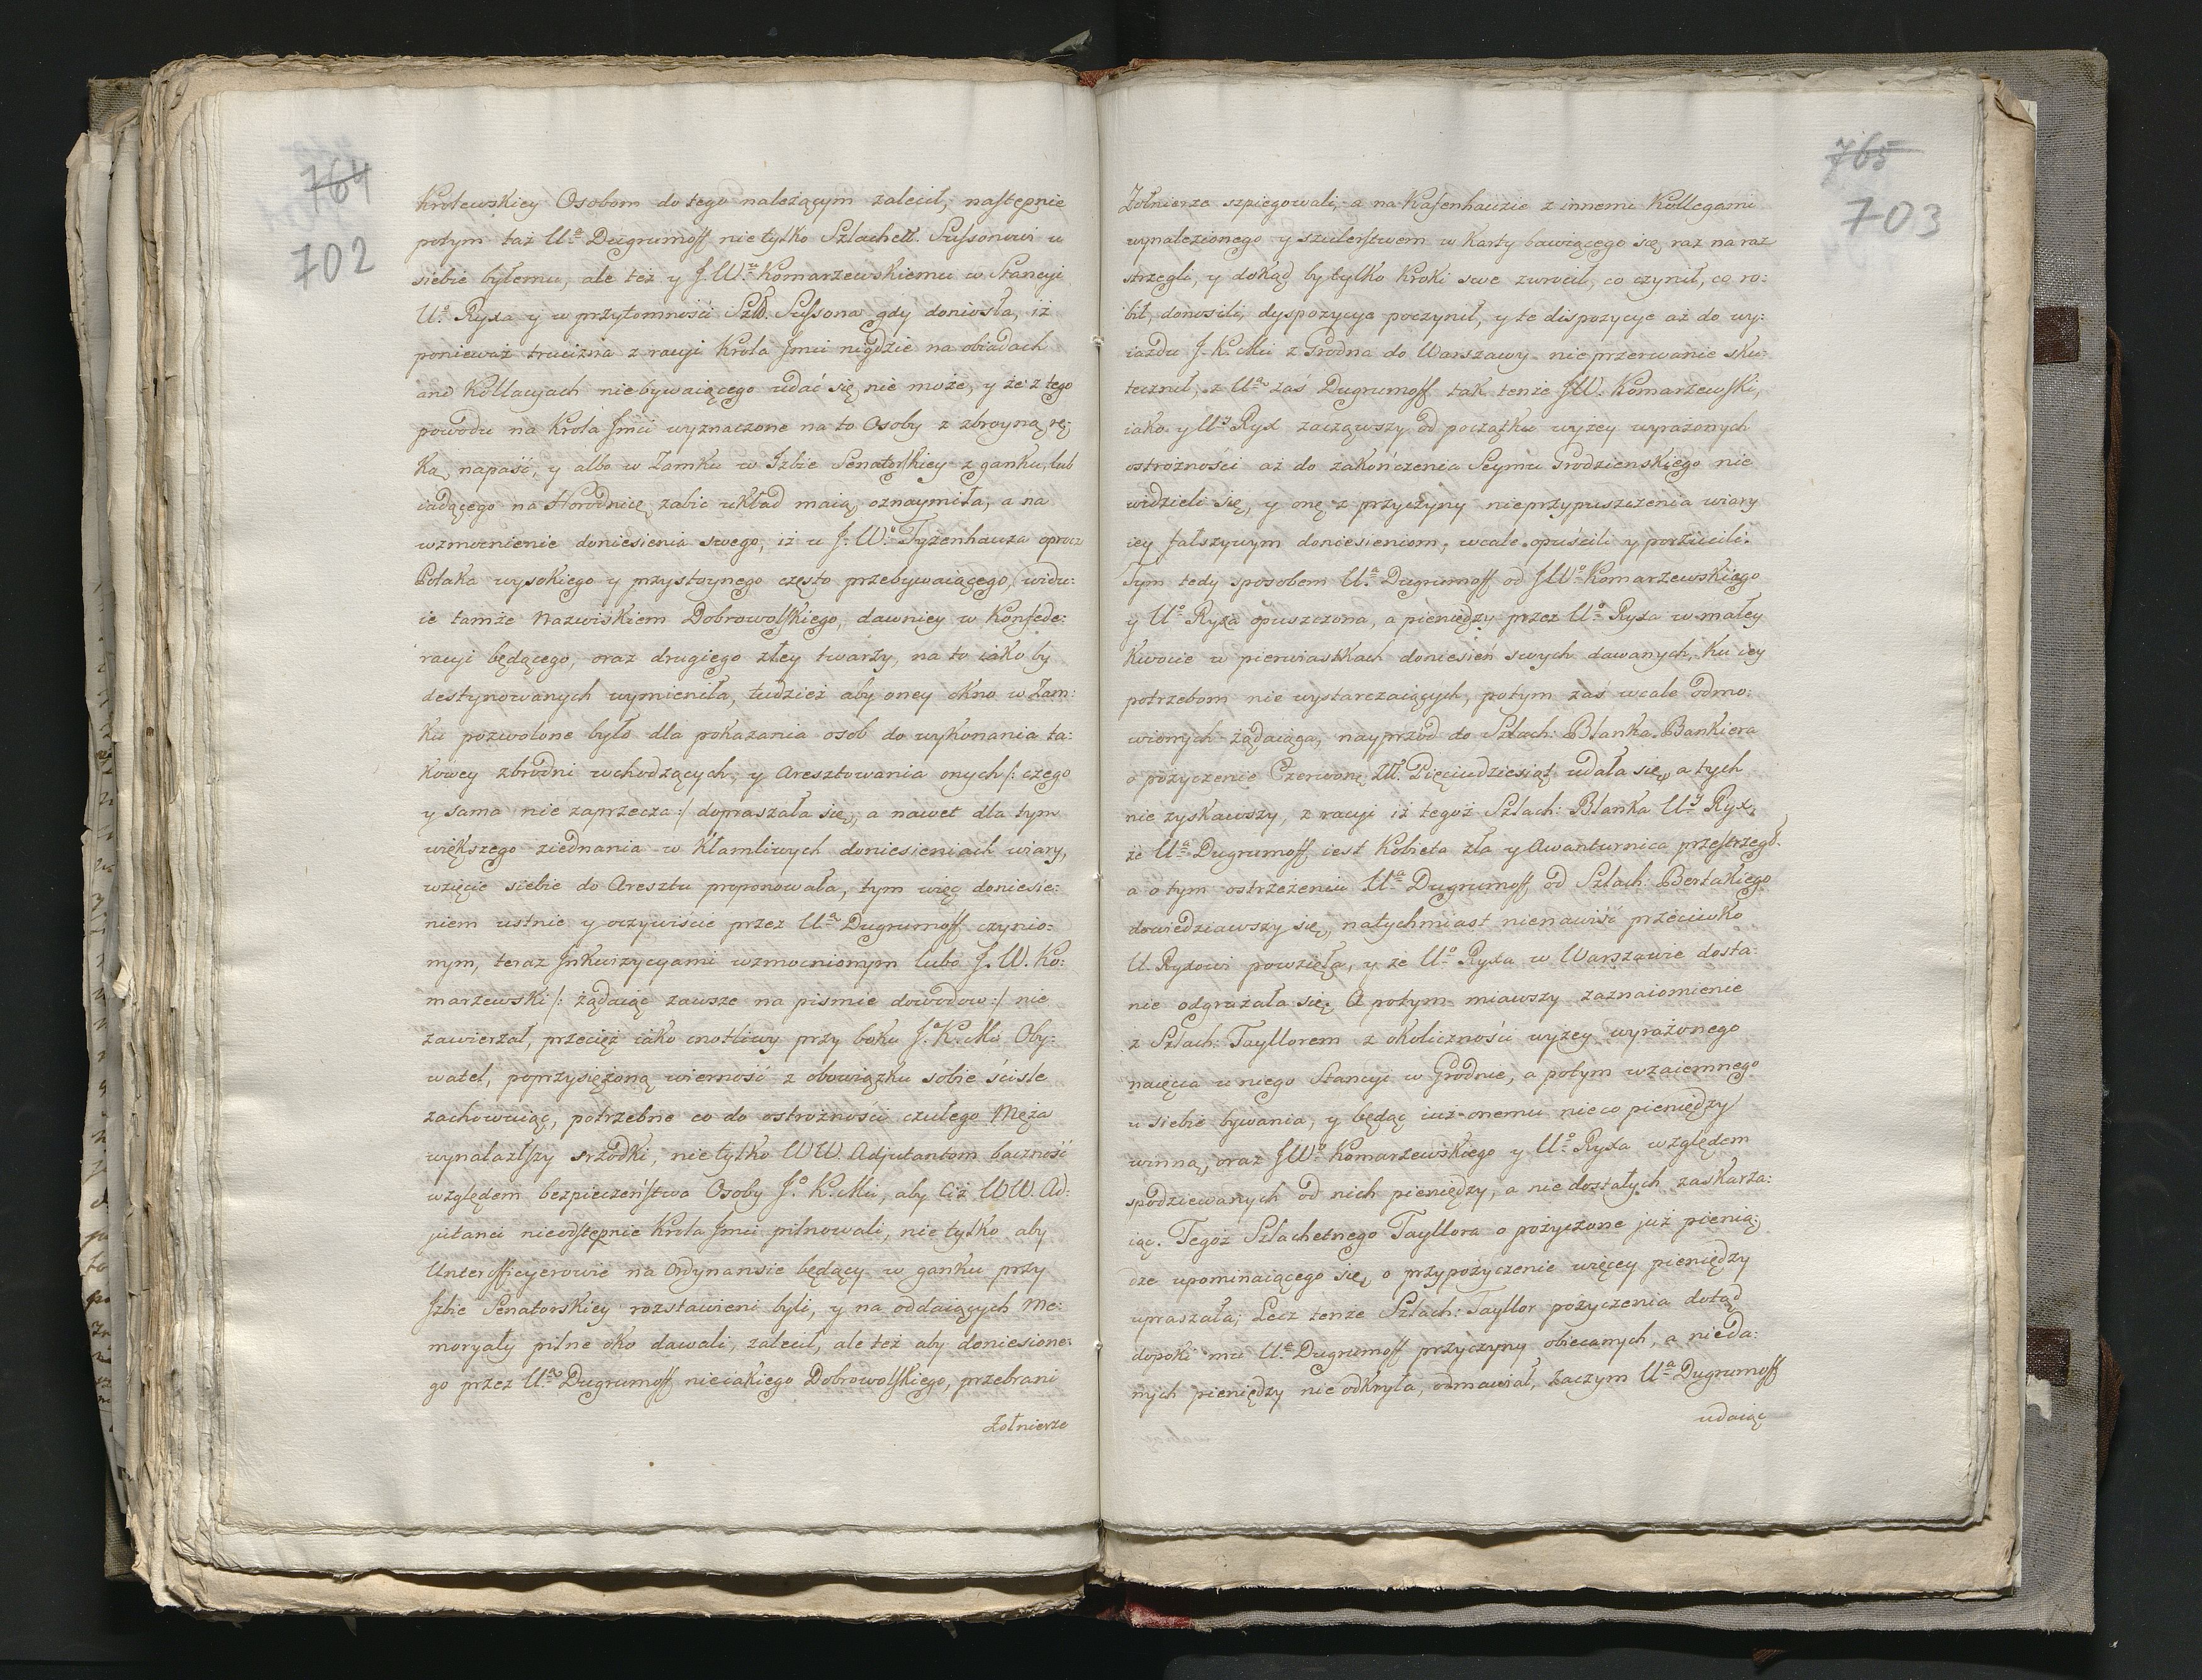 764
702
Krolewskiey Osobom do tego należącym zalecił, następnie
potym taż Ur̃a Dugrumoff nie tylko Szlachett. Sussonowi u
siebie byłemu, ale też y J. W. Komarzewskiemu w Stancyi
Uo Ryxa y w przytomności Szl. Sussona gdy doniosła, iż
ponieważ trucizna z racyi Krola Jmci nigdzie na obiadach
and Kollacyach niebywaiącego udać się nie może, y że z tego
powodu na Krola Jmci wyznaczone na to Osoby z zbroyną rę-
ką napaść, y albo w Zamku w Izbie Senatorskiey z ganku, lub
iadącego na Horodnicę zabić układ maią, oznaymiła, a na
wzmocnienie doniesienia swego, iż u J. Wo Tyzenhauza oprocz
Polaka wysokiego y przystoynego często przebywaiącego, widu:
ie tamże Nazwiskiem Dobrowolskiego, dawniey w Konfede:
racyi będącego, oraz drugiego złey twarzy, na to iako by
destynowanych wymieniła, tudzież aby oney okno w Zam:
ku pozwolone było dla pokazania osob do wykonania ta:
kowey zbrodni wchodzących, y Aresztowania onych /: czego
y sama nie zaprzecza :/ dopraszała się, a nawet dla tym
większego ziednania w kłamliwych doniesieniach wiary,
wzięcie siebie do Aresztu proponowała, tym więc doniesie:
niem ustnie y oczywiście przez Ua Dugrumoff czynio:
nym, teraz Inkwizycyami wzmocnionym lubo J. W. Ko:
marzewski /: żądaiąc zawsze na pismie dowodow :/ nie
zawierzał, przecież iako cnotliwy przy boku J. K. Mci Oby:
watel, poprzysiężoną wierność z obowiązku sobie ściśle
zachowuiąc, potrzebne co do ostrożności czułego Męża
wynalazłszy srzodki, nie tylko WW. Adjutantom baczność
względem bezpieczeństwa Osoby Jo K. Mci, aby Ciż WW. Ad:
jutanci nieodstępnie Krola Jmci pilnowali, nie tylko aby
Unterofficyerowie na Ordynansie będący w ganku przy
Izbie Senatorskiey rozstawieni byli, y na oddaiących Me:
moryały pilne oko dawali, zalecił, ale też aby doniesione:
go przez Ua Dugrumoff nieiakiego Dobrowolskiego, przebrani
Żołnierze
765
703
Żołnierze szpiegowali, a na Kafenhauzie z innemi Kollegami
wynalezionego y szulerstwem w Karty bawiącego się raz na raz
strzegli, y dokąd by tylko Kroki swe zwrócił, co czynił, co ro:
bił, donosili, dyspozycye poczynił, y te dispozycye aż do wy:
iazdu J. K. Mci z Grodna do Warszawy nie przerwanie sku:
tecznił, z Ua zaś Dugrumoff tak tenże JW. Komarzewski,
iako y Uy Ryx zacząwszy od początku wyżey wyrażonych
ostrożności aż do zakończenia Seymu Grodzienskiego nie
widzieli się, y onę z przyczyny nieprzypuszczenia wiary
iey fałszywym doniesieniom, wcale opuścili y porzucili.
Tym tedy sposobem Ua Dugrumoff od JWo Komarzewskiego
y Uo Ryxa opuszczona, a pieniędzy przez Uo Ryxa w małey
kwocie w pierwiastkach doniesień swych dawanych, ku iey
potrzebom nie wystarczaiących, potym zaś wcale odmo:
wionych żądaiąca, nayprzod do Szlach: Blanka Bankiera
o pożyczenie Czerwonę Zlł. Pięciudziesiąt udała się, a tych
nie zyskawszy, z racyi iż tegoż Szlach: Blanka Uy Ryx,
że Ua Dugrumoff iest Kobieta zła y Awanturnica przestrzegł.
a o tym ostrzeżeniu Ua Dugrumoff od Szlach: Bertakiego
dowiedziawszy się, natychmiast nienawiść przeciwko
U. Ryxowi powzięła, y że Uo Ryxa w Warszawie dosta:
nie odgrażała się. A potym miawszy zaznaiomienie
z Szlach: Tayllorem z okoliczności wyżey wyrażonego
naięcia u niego Stancyi w Grodnie, a potym wzaiemnego
u siebie bywania, y będąc iuż onemu nieco pieniędzy
winna, oraz JWo Komarzewskiego y Uo Ryxa względem
spodziewanych od nich pieniędzy, a nie dostałych zaskarża:
iąc. Tegoż Szlachetnego Tayllora o pożyczone już pienią:
dze upominaiącego się, o przypożyczenie więcey pieniędzy
upraszała; Lecz tenże Szlach: Tayllor pożyczenia dotąd
dopoki mu Ua Dugrumoff przyczyny obiecanych, a nieda:
nych pieniędzy nie odkryła, odmawiał, zaczym Ua Dugrumoff
udaiąc